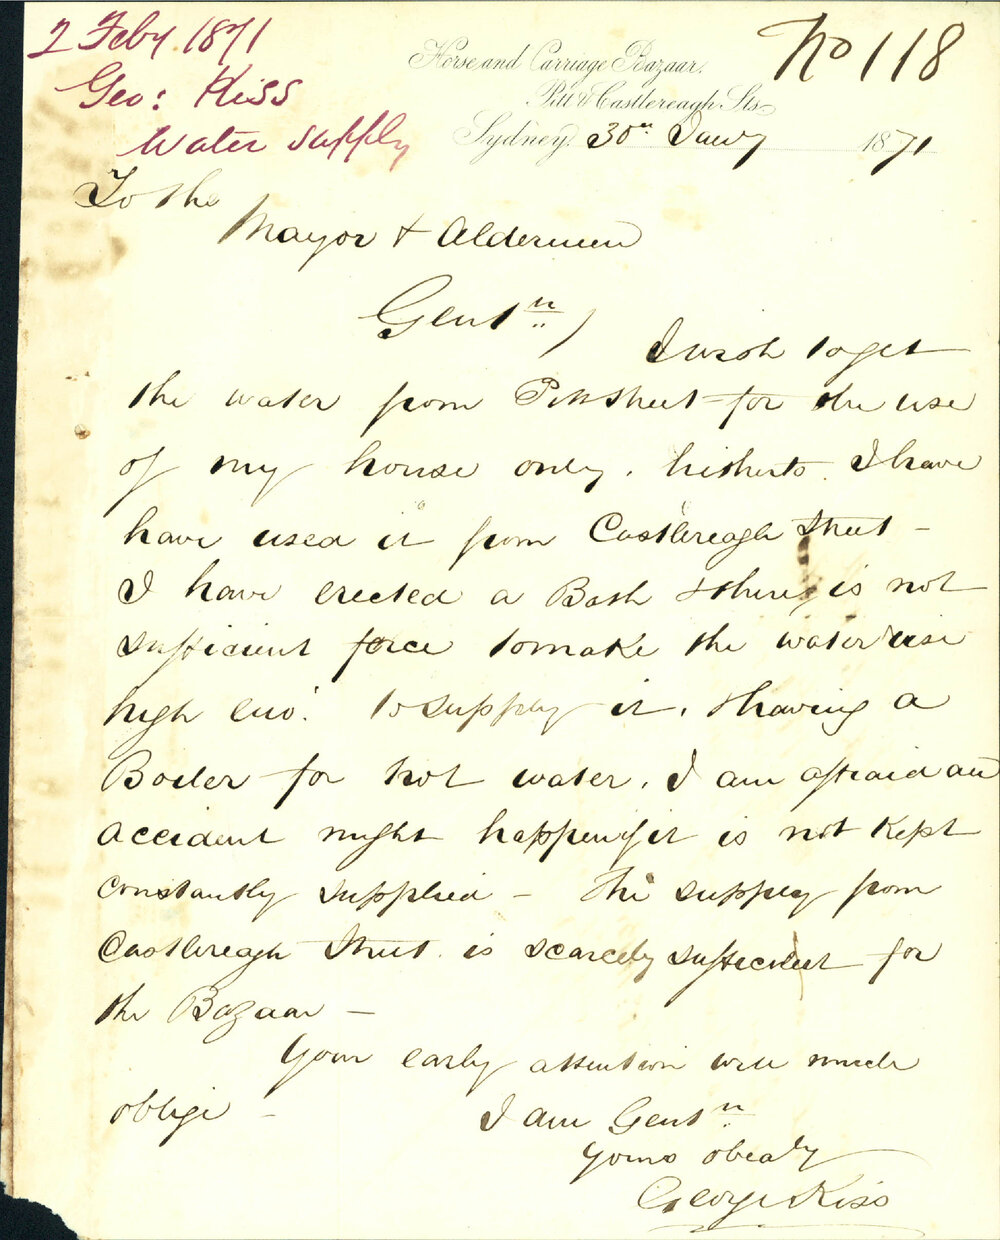 2 Feby 1871
Geo: Kiss
Water supply
No 118
Horse and Carriage Bazaar,
Pitt & Castlereagh Sts
Sydney, 30th Jany 1871
To the
Mayor & Aldermen
Gentn,
I wish to get
the water from Pitt Street for the use
of my house only. hitherto I have
have used it from Castlereagh Street -
I have erected a Bath & there is not
sufficient force to make the water rise
high eno'. to supply it. & having a
Boiler for hot water. I am afraid an
accident might happen if it is not kept
constantly supplied - The supply from
Castlereagh Street is scarcely sufficient for
the Bazaar -
Your early attention will much
oblige -
I am Gentn
Yours obedly
George Kiss